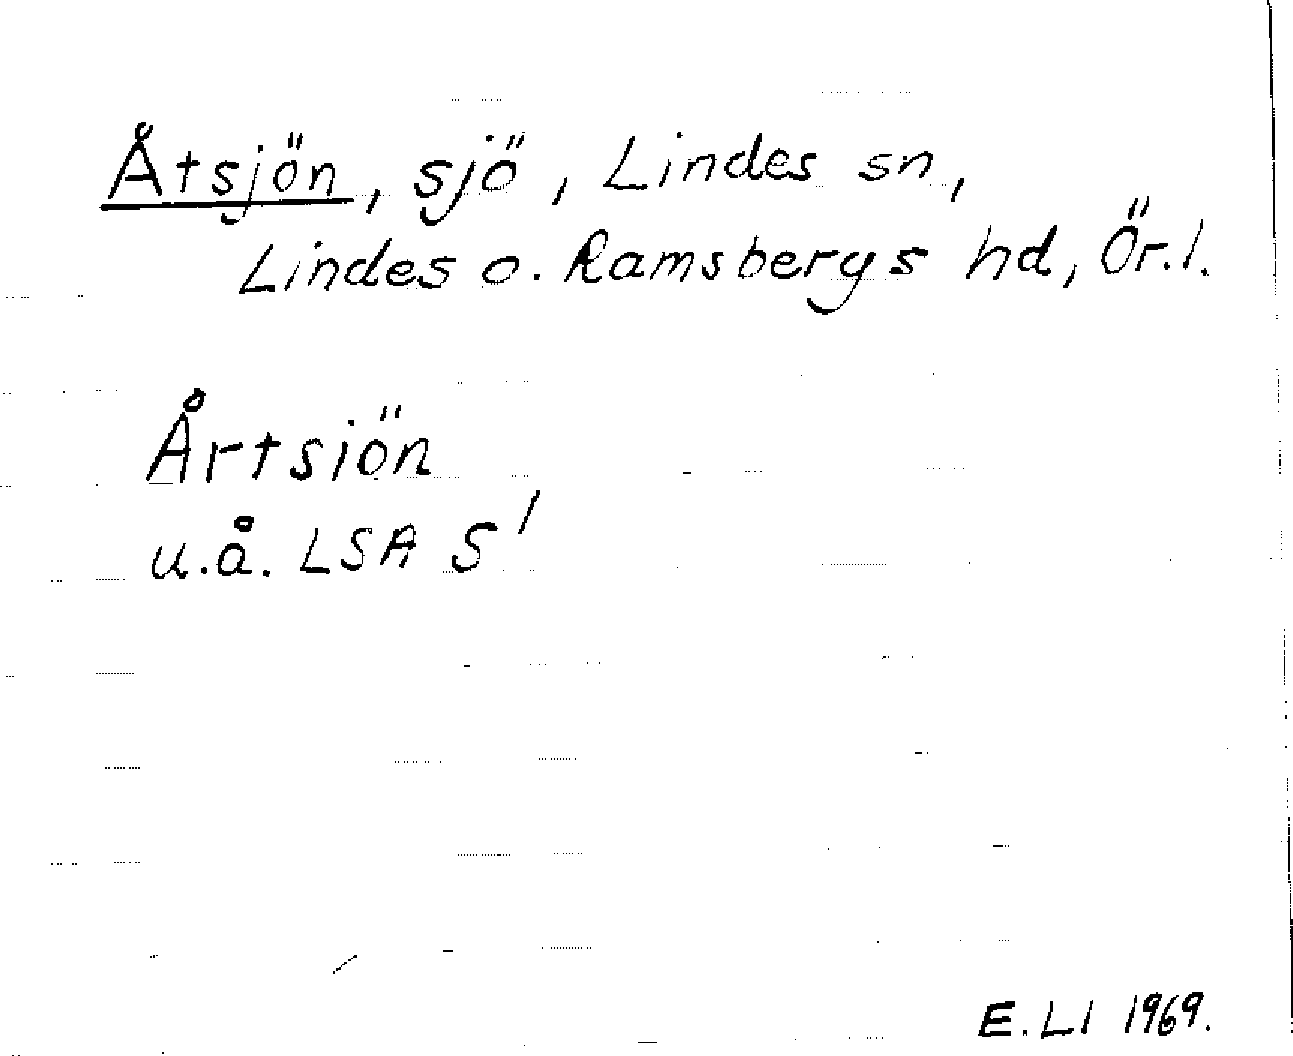 Åtsjön, sjö, Lindes sn,
Lindes o. Ramsbergs hd, Ör.l.
Årtsiön
u.å. LSA S'
E.LI 1969.